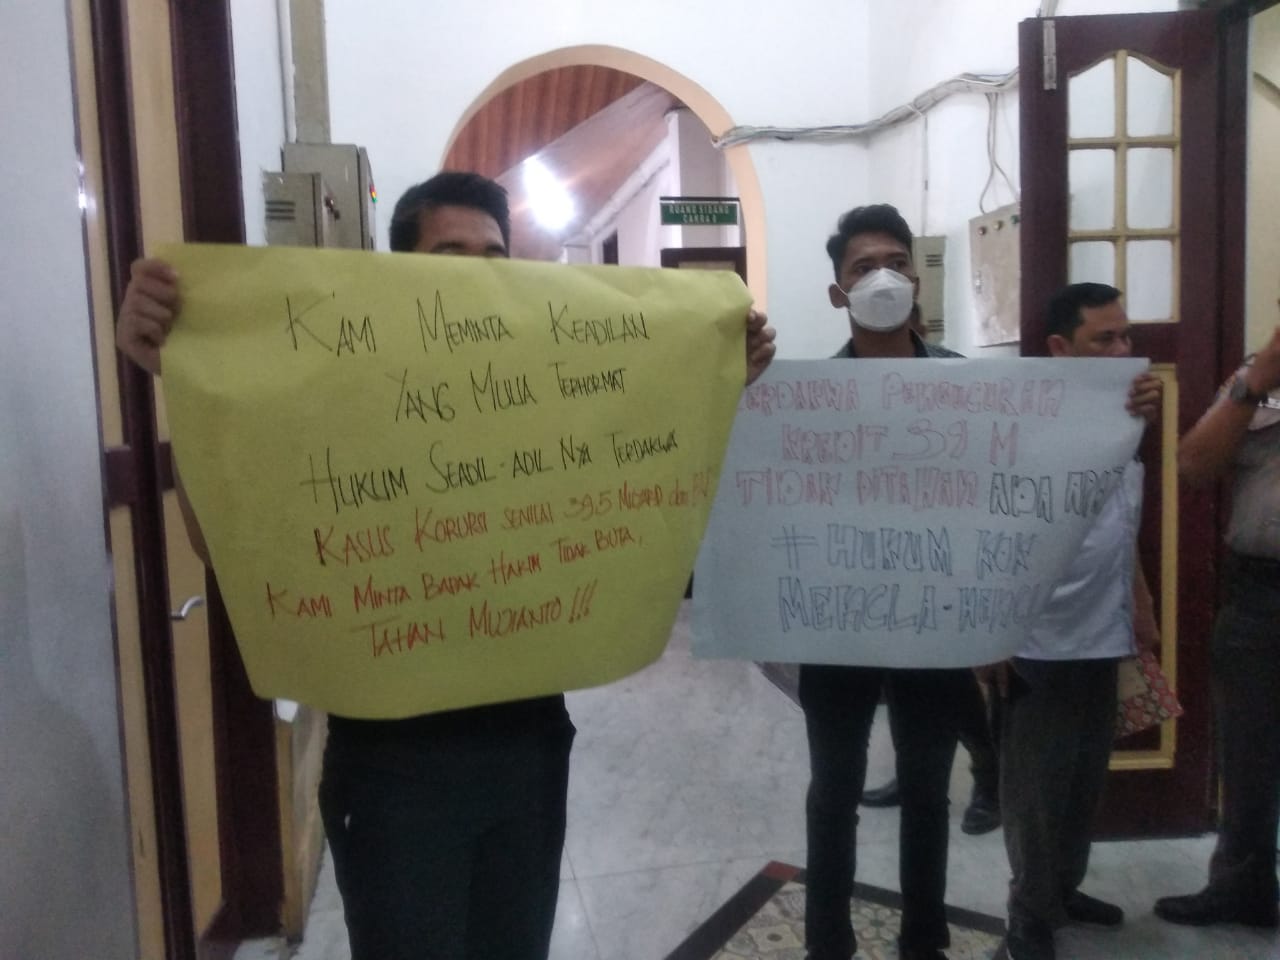 RUANG SIDANG
CAKRA
KAMI MEMINTA KEADILAN
YANG MULIA TERHORMAT
HUKUM SEADIL-ADIL NYA TERDAKWA
KASUS KORUPSI SENILAI 39,5 MILIARD dari
KAMI MINTA BAPAK HAKIM TIDAK BUTA,
TAHAN MUJIANTO!!!
TERDAKWA PENGUCURAN
KREDIT 39 M
TIDAK DITAHAN ADA APA
# HUKUM KOK